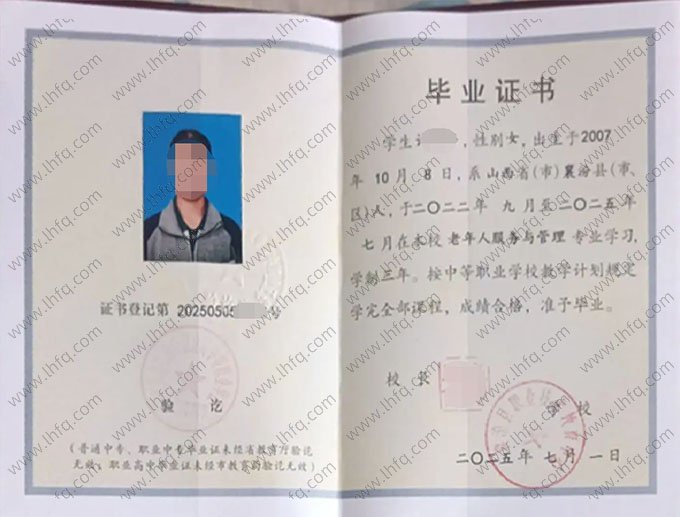 证书登记第 20250505 号
验讫
(普通中专、职业中专毕业证未经省教育厅验讫
无效; 职业高中毕业证未经市教育局验讫无效)
毕业证书
学生 , 性别女, 出生于2007
年 10 月 8 日, 系山西省(市)襄汾县(市、
区)人, 于二〇二二年 九月至二〇二五年
七月在本校 老年人服务与管理 专业学习,
学制三年。按中等职业学校教学计划规定
学完全部课程, 成绩合格, 准予毕业。
校长
学校
二〇二五年 七月 一日
www.lhfq.com